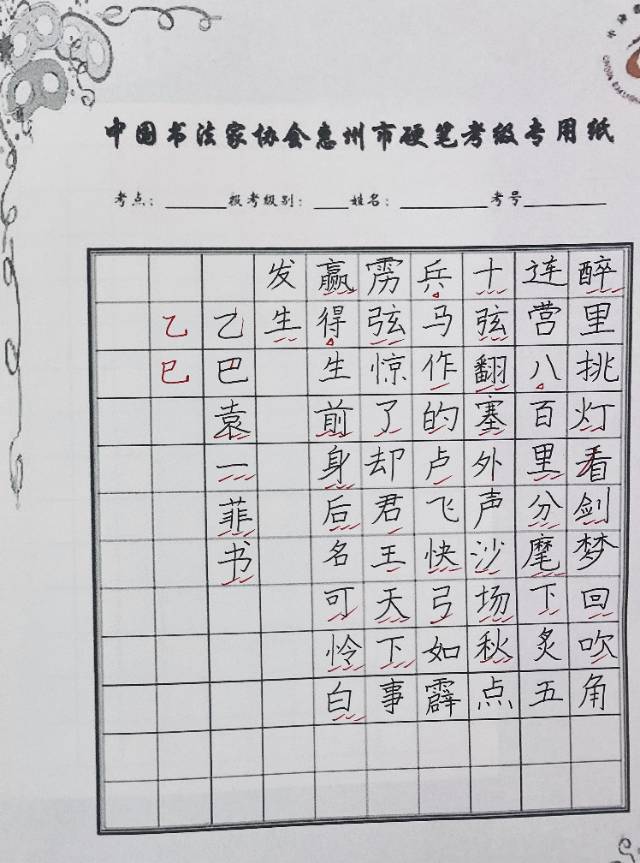 中国书法家协会惠州市硬笔考级专用纸
考点：______报考级别：___姓名：________考号________
醉里挑灯看剑梦回吹角
连营八百里分麾下炙五
十弦翻塞外声沙场秋点
兵马作的卢飞快弓如霹
雳弦惊了却君王天下事
赢得生前身后名可怜白
发生
乙巴袁一菲书
乙巳